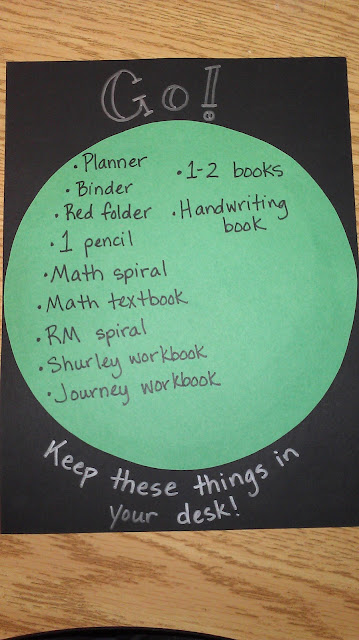 Go!
• Planner
• Binder
• Red folder
• 1 pencil
• Math spiral
• Math textbook
• RM spiral
• Shurley workbook
• Journey workbook
• 1-2 books
• Handwriting
book
Keep these things in
your desk!